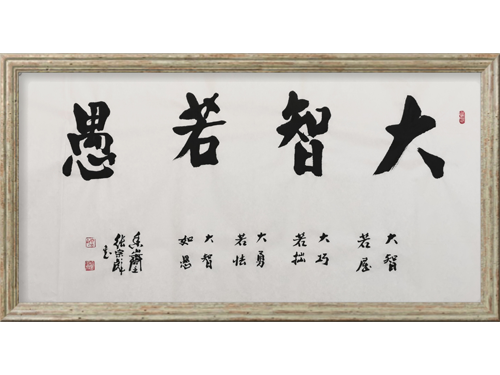 大智若愚
大智
若屈
大巧
若拙
大勇
若怯
大智
如愚